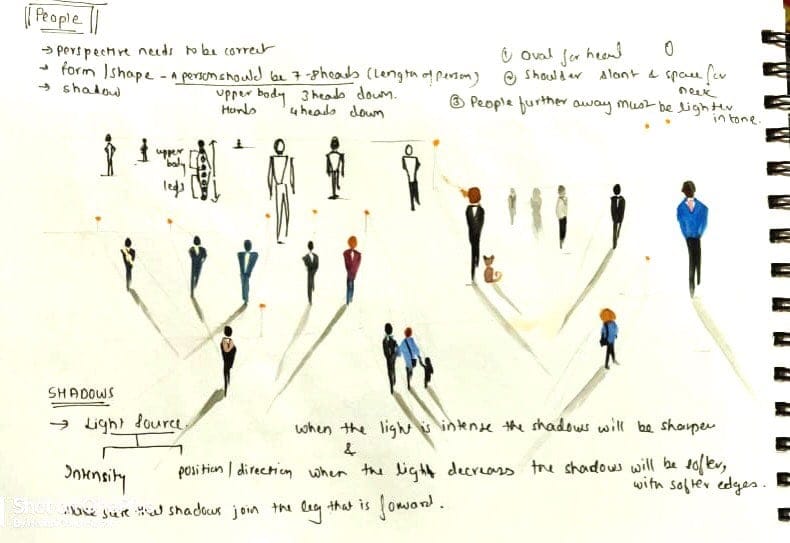 People
→ perspective needs to be correct
→ form / shape - A person should be 7-8 heads (length of person)
→ shadow
upper body 3 heads down.
Hands 4 heads down
① Oval for head 0
② Shoulder slant & space for
neck
③ People further away must be lighter
in tone.
upper
body
legs
SHADOWS
→ Light Source.
Intensity
position / direction
when the light is intense the shadows will be sharper
&
when the light decreases the shadows will be softer,
with softer edges.
Make sure that shadows join the leg that is forward.
Shot on